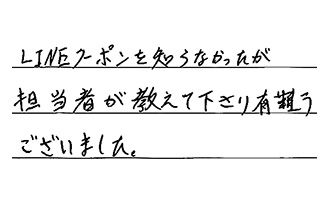 LINEクーポンを知らなかったが
担当者が教えて下さり有難う
ございました。